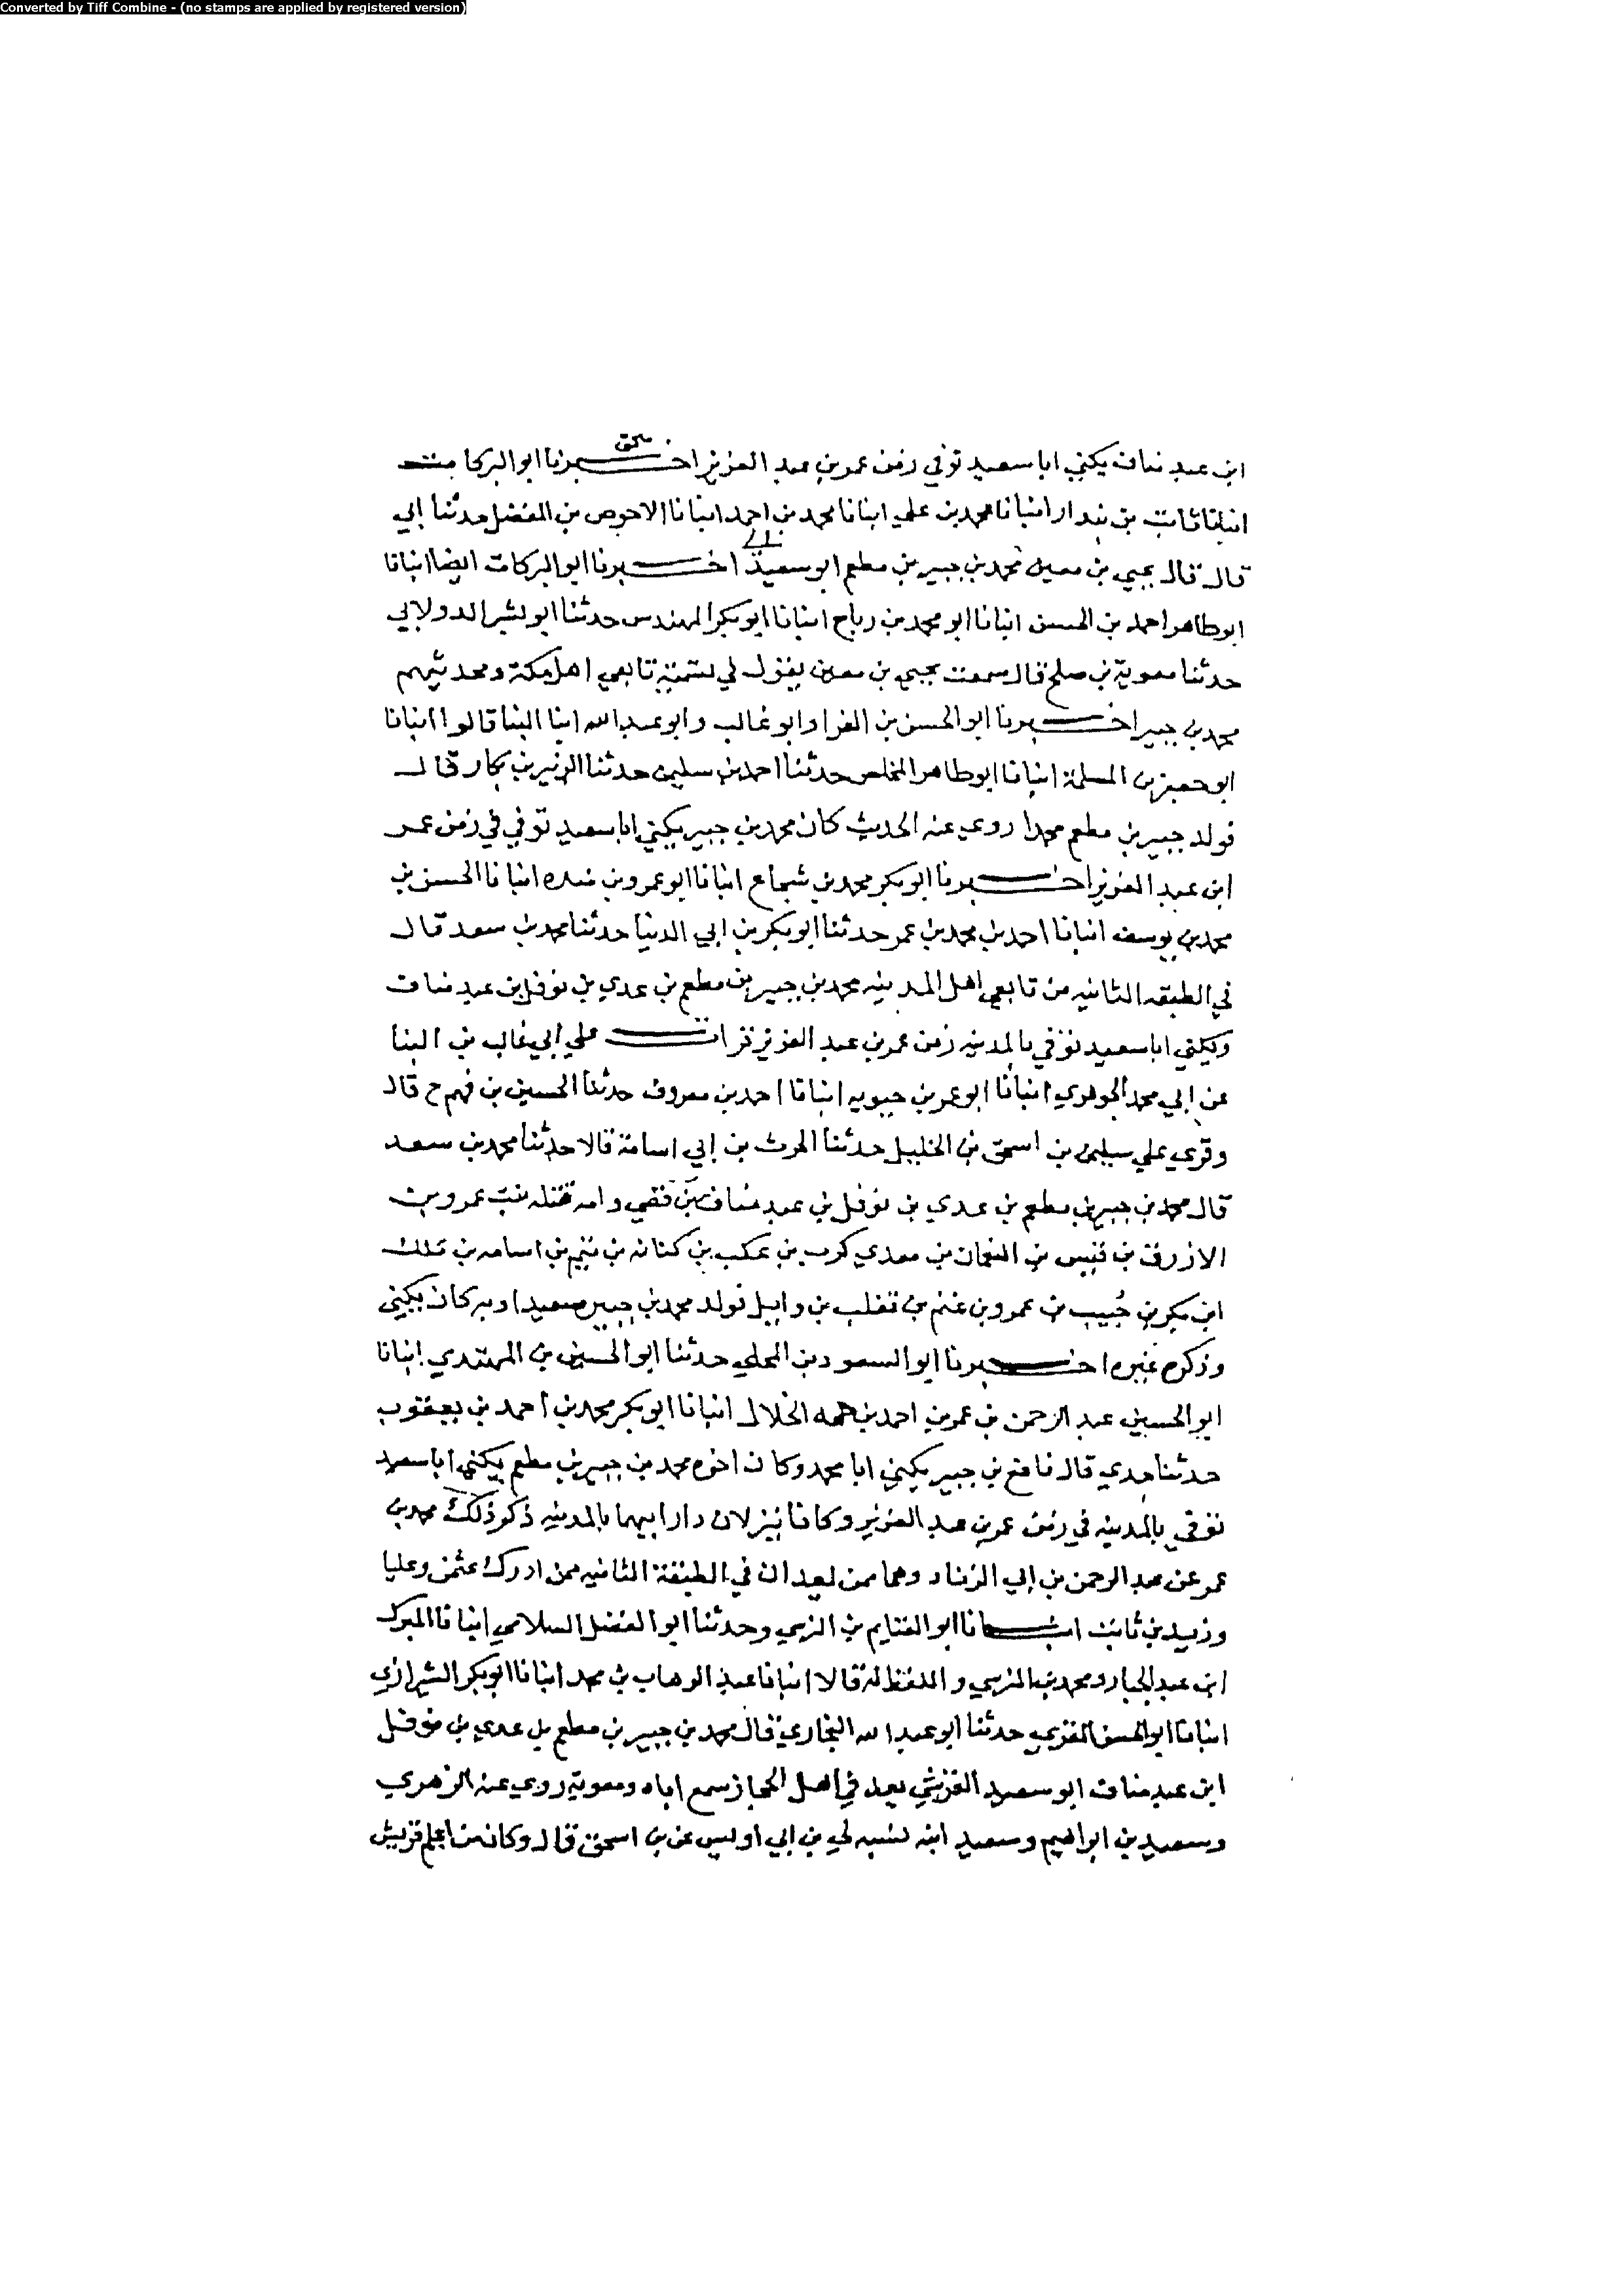 Converted by Tiff Combine - (no stamps are applied by registered version)
ابن عبد مناف يكني ابا سعيد توفي زمن عمر بن عبد العزيز اخبرنا ابو البركات
انبانا ثابت بن بندار انبانا محمد بن علي انبانا محمد بن احمد انبانا الاحوص بن المفضل حدثنا ابي
قال قال يحيي بن معين محمد بن جبير بن مطعم ابو سعيد اخبرنا ابو البركات ايضا انبانا
ابو طاهر احمد بن الحسن انبانا ابو محمد بن رباح انبانا ابو بكر المهندس حدثنا ابو بشر الدولابي
حدثنا معوية بن صلح قال سمعت يحيي بن معين يقول في تسمية تابعي اهل مكة ومحدثيهم
محمد بن جبير اخبرنا ابو الحسن بن الفرا وابو غالب وابو عبد الله ابنا البنا قالوا انبانا
ابو جعفر بن المسلمة انبانا ابو طاهر المخلص حدثنا احمد بن سليمن حدثنا الزبير بن بكار قال
فولد جبير بن مطعم محمدا روي عنه الحديث كان محمد بن جبير يكني ابا سعيد توفي في زمن عمر
ابن عبد العزيز اخبرنا ابو بكر محمد بن شجاع انبانا ابو عمرو بن منده انبانا الحسن بن
محمد بن يوسف انبانا احمد بن محمد بن عمر حدثنا ابو بكر بن ابي الدنيا حدثنا محمد بن سعد قال
في الطبقه الثانيه من تابعي اهل المدينه محمد بن جبير بن مطعم بن عدي بن نوفل بن عبد مناف
ويكني ابا سعيد توفي بالمدينه زمن عمر بن عبد العزيز قرات علي ابي غالب بن البنا
عن ابي محمد الجوهري انبانا ابو عمر بن حيويه انبانا احمد بن معروف حدثنا الحسين بن فهم ح قال
وقري علي سليمن بن اسحق بن الخليل حدثنا الحرث بن ابي اسامة قالا حدثنا محمد بن سعد
قال محمد بن جبير بن مطعم بن عدي بن نوفل بن عبد مناف بن قصي وامه قتيله بنت عمرو بن
الازرق بن قيس بن النعمان بن معدي كرب بن عكب بن كنانه بن تيم بن اسامه بن ملك
ابن بكر بن حُبيب بن عمرو بن غنم بن تغلب بن وايل فولد محمد بن جبير سعيدا وبه كان يكني
وذكره غيره اخبرنا ابو السعود بن المجلي حدثنا ابو الحسين بن المهتدي انبانا
ابو الحسين عبد الرحمن بن عمر بن احمد بن حمه الخلال انبانا ابو بكر محمد بن احمد بن يعقوب
حدثنا جدي قال نافع بن جبير يكني ابا محمد وكان اخوه محمد بن جبير بن مطعم يكني ابا سعيد
توفي بالمدينه في زمن عمر بن عبد العزيز وكانا ينزلان دار ابيهما بالمدينه ذكر ذلك محمد بن
عمر عن عبد الرحمن بن ابي الزناد وهما ممن يعدان في الطبقة الثانيه ممن ادرك عثمن وعليا
وزيد بن ثابت انبانا ابو الغنايم بن النرسي وحدثنا ابو الفضل السلامي انبانا المبرك
ابن عبد الجبار ومحمد بن النرسي واللفظ له قالا انبانا عبد الوهاب بن محمد انبانا ابو بكر الشيرازي
انبانا ابو الحسن المقري حدثنا ابو عبد الله البخاري قال محمد بن جبير بن مطعم بن عدي بن نوفل
ابن عبد مناف ابو سعيد القرشي يعد في اهل الحجاز سمع اباه ومعوية روي عنه الزهري
وسعيد بن ابراهيم وسعيد ابنه نسبه لي بن ابي اويس عن بن اسحق قال وكان من اعلم قريش